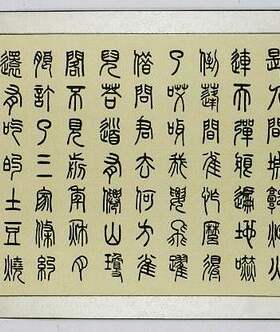 是人間城郭炮火
連天彈痕遍地嚇
倒蓬間雀怎麼得
了哎呀我要飛躍
借問君去何方雀
兒答道有僊山瓊
閣不見前年秋月
朗訂了三家條約
還有吃的土豆燒